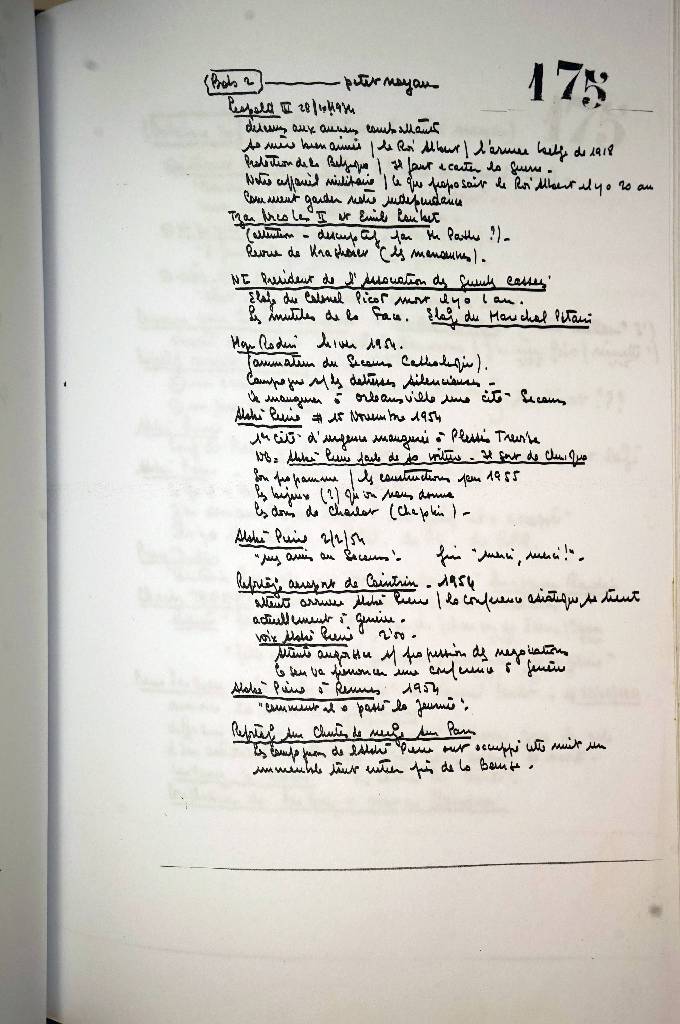 Bob 2 — peter noyau
175
Leopold III 28/10/1934
discours aux anciens combattants
sa mère bien aimée / le Roi Albert / l'armée belge de 1918
Protection de la Belgique / Il faut écarter la Guerre -
Notre appareil militaire / ce que proposait le Roi Albert il y a 20 ans
Comment garder notre independance
Tzar Nicolas II et Emile Loubet
(attention - descriptif par Mr Pathe ?) -
Revue de (les manœuvres).
NI President de l'Association des Gueules cassées
Eloge du Colonel Picot mort il y a 1 an.
Les mutilés de la Face. Eloge du Marechal Petain
Mgr Rodhi hiver 1954.
(animateur du Secours Catholique).
Campagne s/ les detresses silencieuses -
Va inaugurer à Orleansville une cité Secours
Abbé Pierre # 15 Novembre 1954
1re cité d'urgence inaugurée à Plessis Trevise
NB. Abbé Pierre parle de sa voiture - Il sort de clinique
Son programme / les constructions pour 1955
Les bijoux (?) qu'on nous donne
Les dons de Charlot (Chaplin) -
Abbé Pierre 2/2/54
"mes amis au Secours". fin "merci, merci!" -
Reptage aeroport de Cointrin - 1954
attente arrivée Abbé Pierre / la conference asiatique se tient
actuellement à Genève -
voix Abbé Pierre 2'00 -
Attente angoisse s/ progression des negociations
Il s'en va prononcer une conference à Genève
Abbé Pierre à Rennes 1954
"comment il a passé la journée".
Reptage sur Chutes de neige sur Paris
Les Compagnons de l'Abbé Pierre ont occupé cette nuit un
immeuble tout entier près de la Bourse.